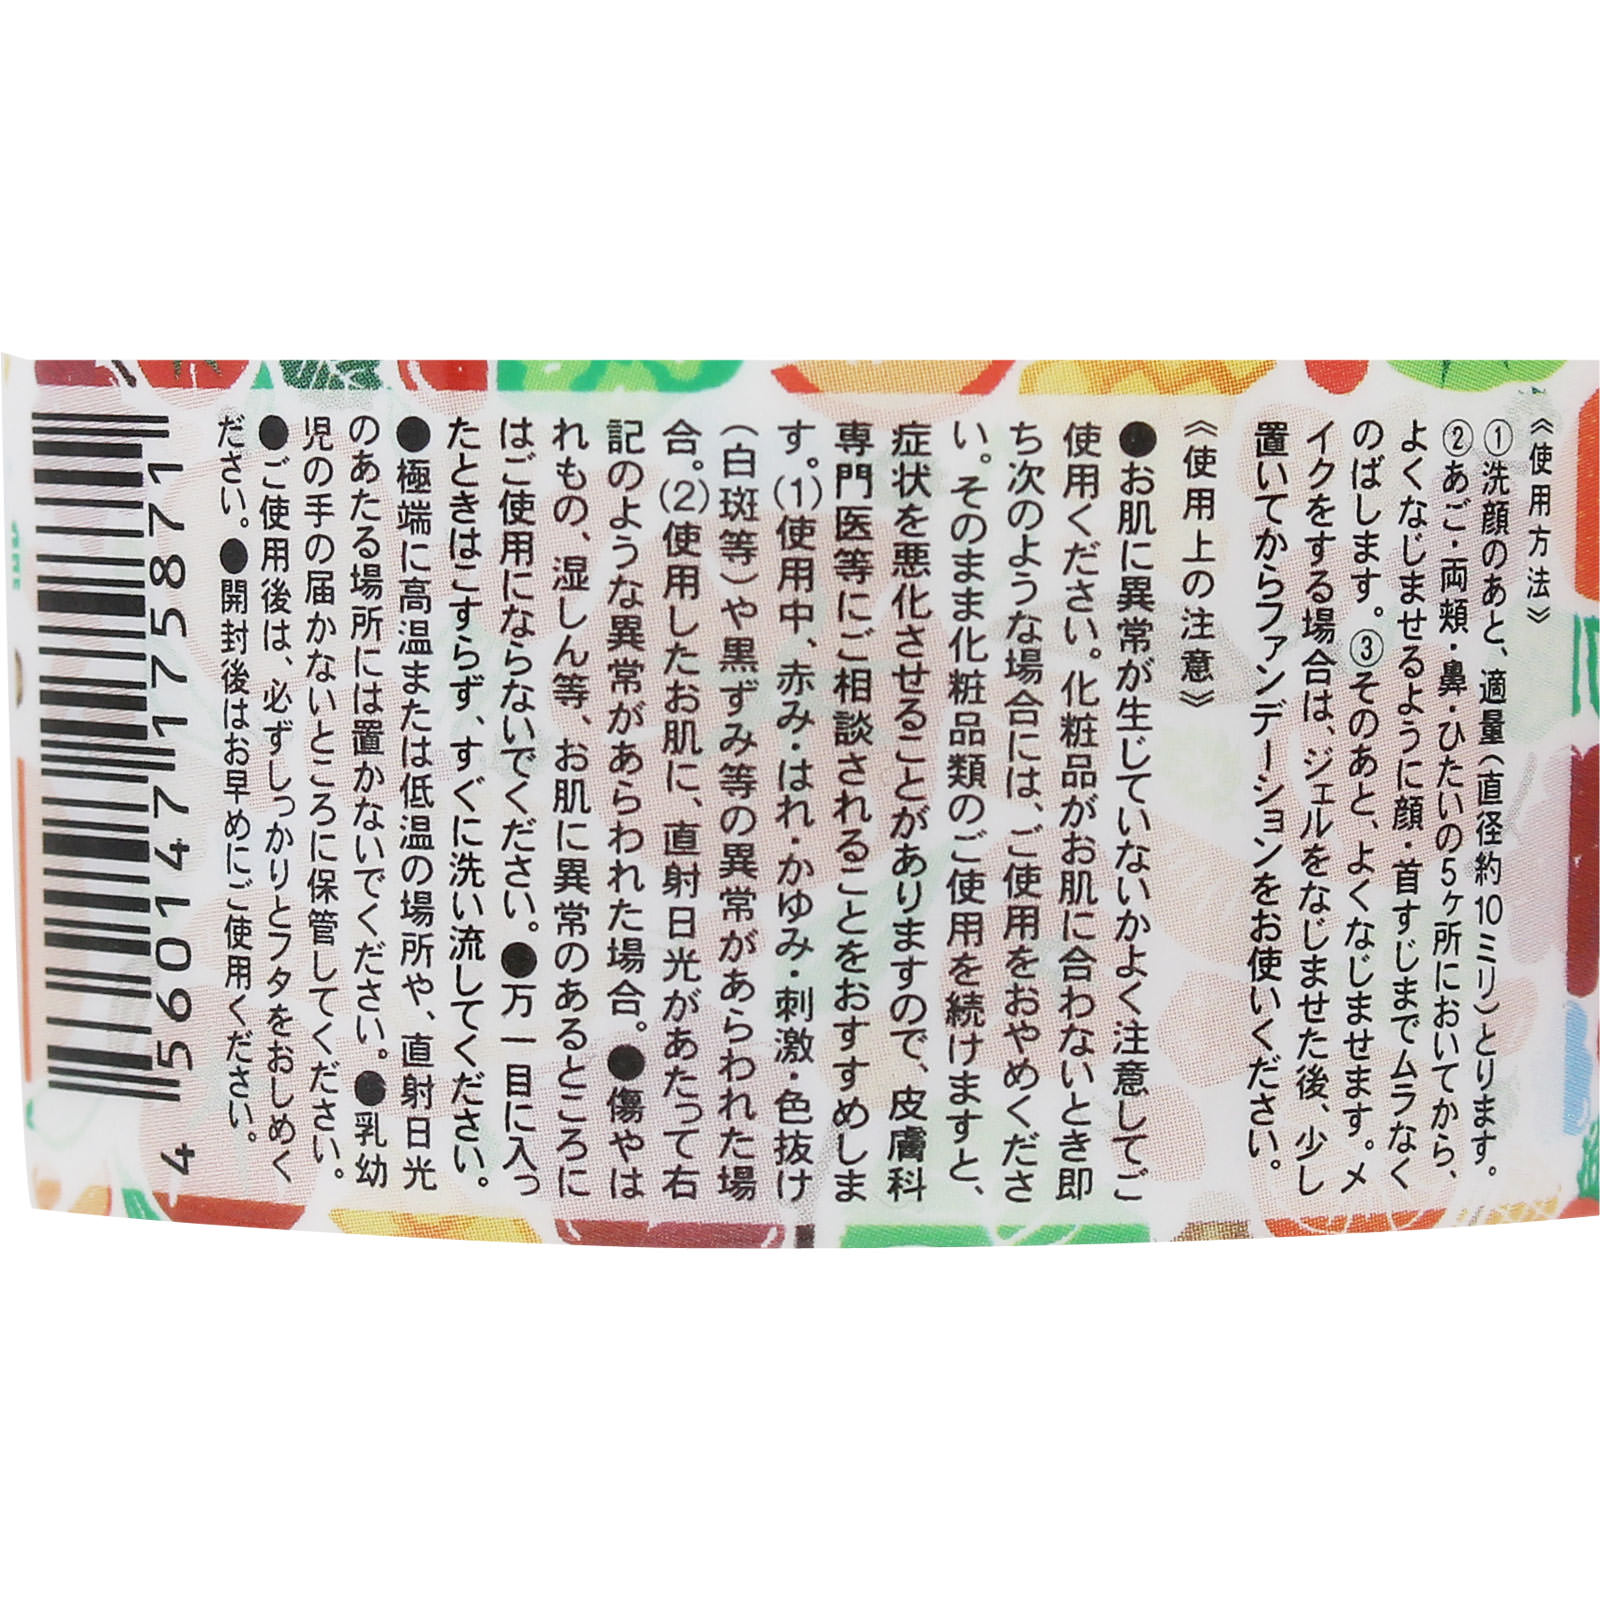 《使用方法》
①洗顔のあと、適量(直径約10ミリ)とります。
②あご・両頬・鼻・ひたいの5ヶ所においてから、
よくなじませるように顔・首すじまでムラなく
のばします。③そのあと、よくなじませます。メ
イクをする場合は、ジェルをなじませた後、少し
置いてからファンデーションをお使いください。
《使用上の注意》
●お肌に異常が生じていないかよく注意してご
使用ください。化粧品がお肌に合わないとき即
ち次のような場合には、ご使用をおやめくださ
い。そのまま化粧品類のご使用を続けますと、
症状を悪化させることがありますので、皮膚科
専門医等にご相談されることをおすすめしま
す。(1)使用中、赤み・はれ・かゆみ・刺激・色抜け
(白斑等)や黒ずみ等の異常があらわれた場
合。(2)使用したお肌に、直射日光があたって右
記のような異常があらわれた場合。●傷やは
れもの、湿しん等、お肌に異常のあるところに
はご使用にならないでください。●万一目に入っ
たときはこすらず、すぐに洗い流してください。
●極端に高温または低温の場所や、直射日光
のあたる場所には置かないでください。●乳幼
児の手の届かないところに保管してください。
●ご使用後は、必ずしっかりとフタをおしめく
ださい。●開封後はお早めにご使用ください。
4560147175871